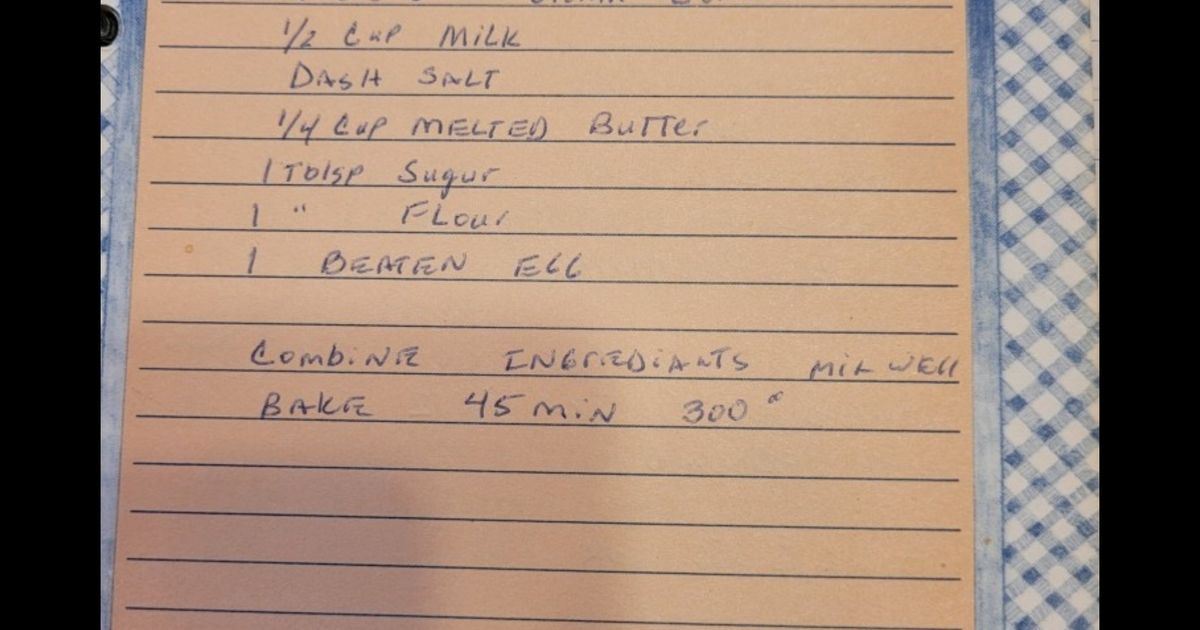 1/2 Cup Milk
DASH SALT
1/4 Cup MELTED Butter
1 Tblsp Sugur
1 " FLour
1 BEATEN EGG
CombiNE INGrEDiANTS Mix WEll
BAKE 45 miN 300°